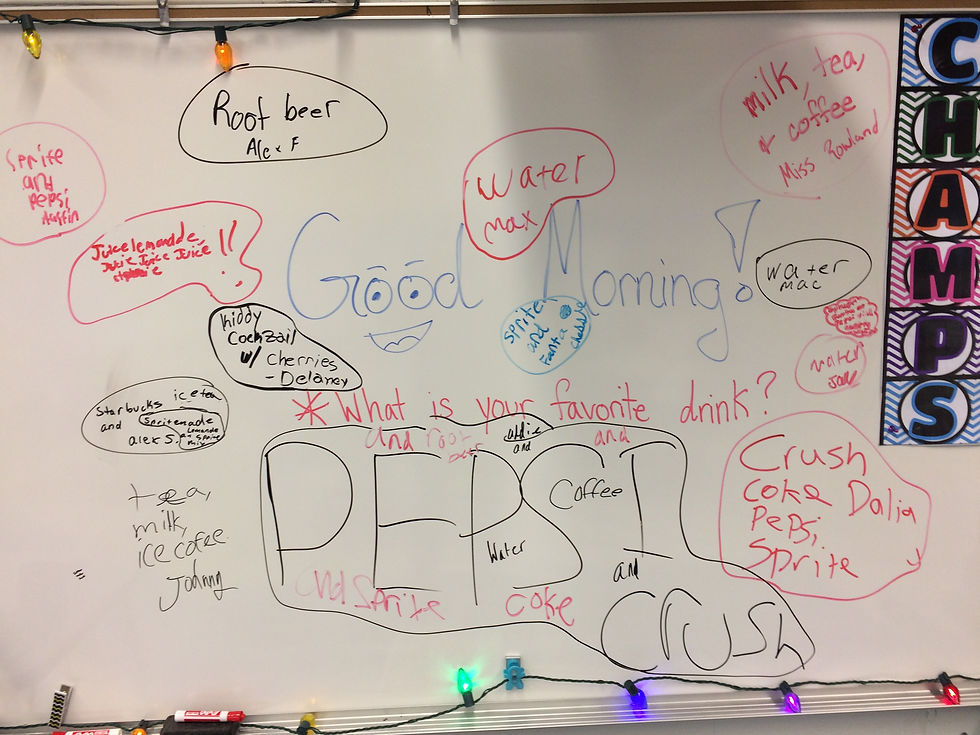 Root beer
Alex F
Sprite
and
pepsi
Austin
water
max
milk, tea,
& coffee
Miss Rowland
Juice lemonade,
Juice Juice Juice
!!
Good Morning!
water
mac
Kiddy
Cockzail
w/ Cherries
- Delaney
Sprite
and
Fanta
water
Starbucks ice tea
and Spritemade
alex S.
Lemonade
Sprite
mix
* What is your favorite drink?
and root
beer
addie
and
and
PEPSI
Coffee
Water
and
and Sprite
coke
CRUSH
Crush
coke Dalia
Pepsi
Sprite
tea,
milk,
ice cofee
Johnny
CHAMPS